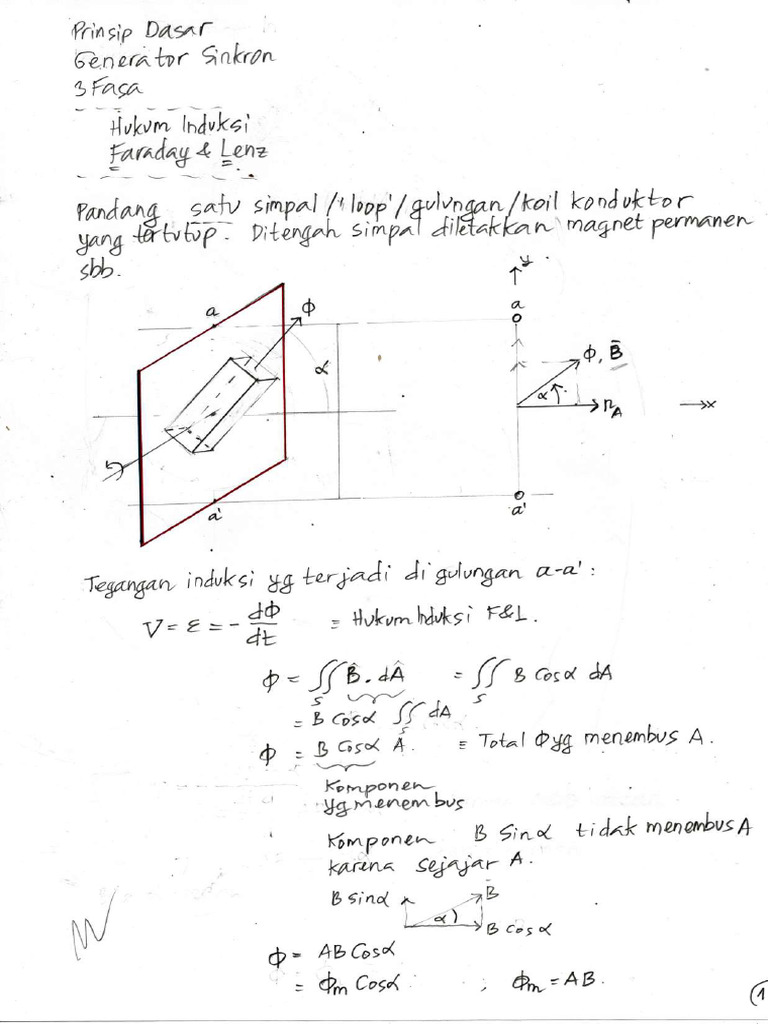 Prinsip Dasar
Generator Sinkron
3 Fasa
Hukum Induksi
Faraday & Lenz
Pandang satu simpal/'loop'/gulungan/koil konduktor
yang tertutup. Ditengah simpal diletakkan magnet permanen
sbb.
y
a
a
ϕ
α
ϕ, B̄
α
n_A
x
a'
a'
Tegangan induksi yg terjadi di gulungan a-a' :
V = ε = - dϕ/dt = Hukum Induksi F&L.
ϕ = ∬_S B̂ . dÂ = ∬_S B Cos α dA
= B Cos α ∬_S dA
ϕ = B Cos α A. = Total ϕ yg menembus A.
Komponen
yg menembus
Komponen B Sin α tidak menembus A
karena sejajar A.
B sin α
B̄
α
B Cos α
ϕ = AB Cos α
= ϕm Cos α ; ϕm = AB.
1